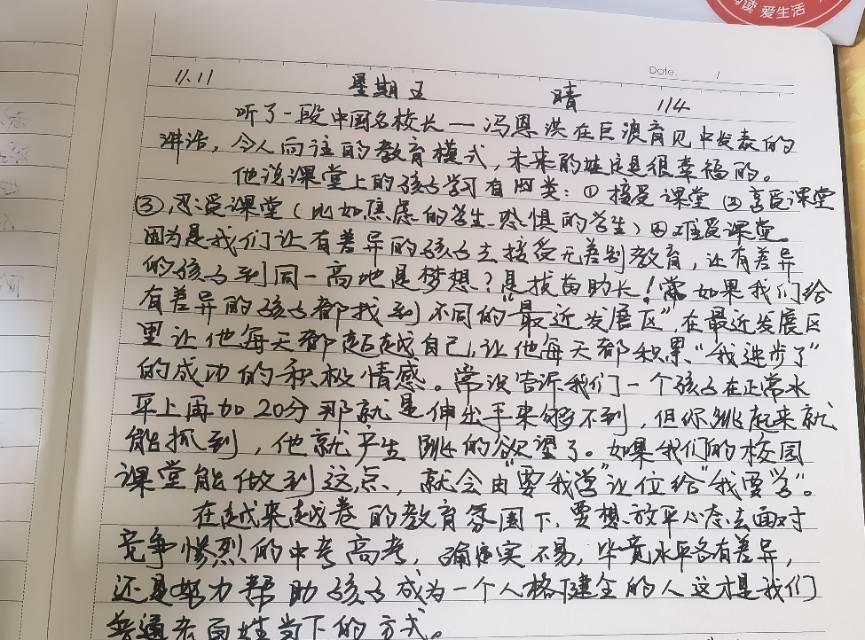 阅读 爱生活
Date /
11.11 星期五 晴 114
听了一段中国名校长一冯恩洪在巨浪育见中发表的
讲话，令人向往的教育模式，未来的娃应是很幸福的。
他说课堂上的孩子学习有四类：① 接受课堂 ② 享受课堂
③，忍受课堂（比如焦虑的学生.恐惧的学生）④难受课堂
因为是我们让有差异的孩子去接受无差别教育，让有差异
的孩子到同一高地是梦想？是拔苗助长！常如果我们给
有差异的孩子都找到不同的“最近发展区”，在最近发展区
里让他每天都超越自己，让他每天都积累“我进步了”
的成功的积极情感。常识告诉我们一个孩子在正常水
平上再加20分那就是伸出手来够不到，但你跳起来就
能抓到，他就产生跳的欲望了。如果我们的校园
课堂能做到这点，就会由“要我学”让位给“我要学”。
在越来越卷的教育氛围下，要想放平心态去面对
竞争惨烈的中考高考，确实不易，毕竟水平各有差异，
还是努力帮助孩子成为一个人格健全的人这才是我们
普通老百姓当下的方式。